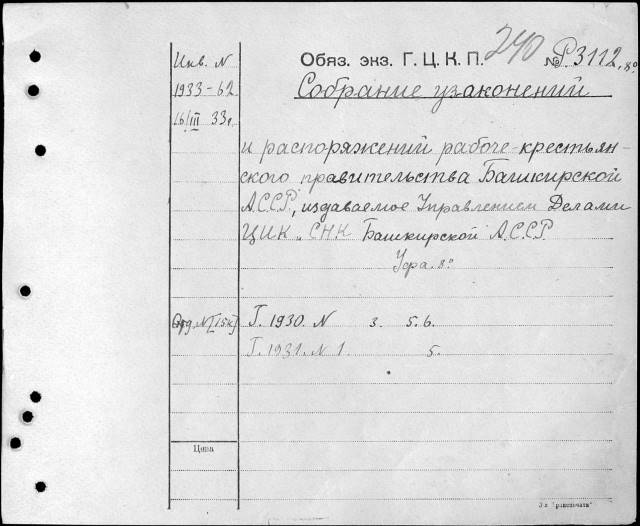 Инв. N
1933-62
16/III 33г.
Обяз. экз. Г. Ц. К. П. 240 № Р3112, 8°
Собрание узаконений
и распоряжений рабоче-крестьян-
ского правительства Башкирской
АССР, издаваемое Управлением Делами
ЦИК и СНК Башкирской А.С.С.Р.
Уфа. 8°
N [15к] Г. 1930. N 3. 5. 6.
Г. 1931. N 1. 5.
Цена